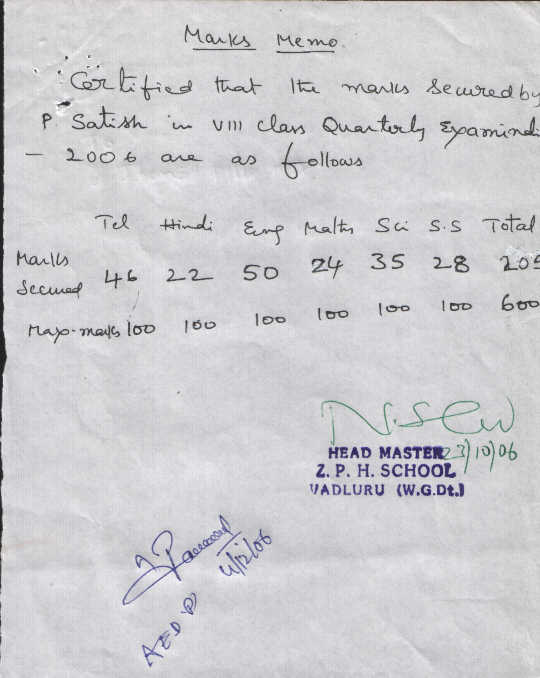 Marks Memo.
Certified that the marks Secured by
P. Satish in VIII class Quarterly Examinati
- 2006 are as follows
Tel Hindi Eng Maths Sci S.S Total
Marks
Secured 46 22 50 24 35 28 205
Max. marks 100 100 100 100 100 100 600
HEAD MASTER 23/10/06
Z. P. H. SCHOOL
VADLURU (W.G.Dt.)
/12/06